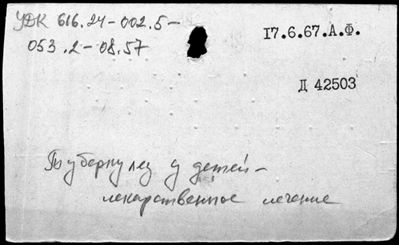 УДК 616.24-002.5-
053.2-08.57
17.6.67.А.Ф.
Д 42503
Туберкулез у детей-
лекарственное лечение